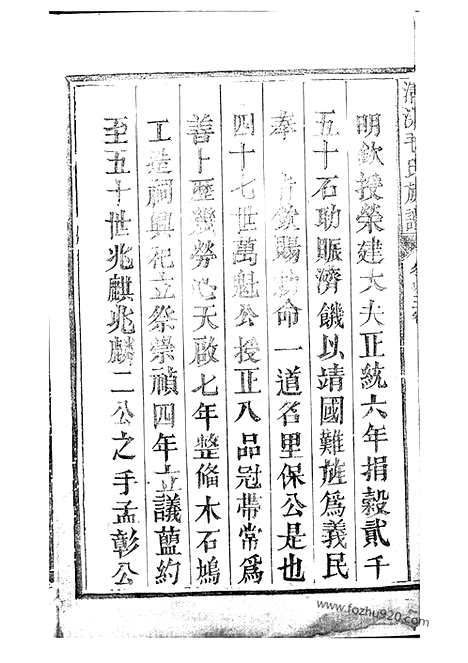 清漾毛氏族譜
明欽授榮建大夫正統六年捐穀貳千
五十石助賑濟饑以靖國難旌爲義民
奉 旨欽賜勅命一道名里保公是也
四十七世萬魁公授正八品冠帶常爲
善十歷幾勞心天啟七年整俻木石鳩
工造祠興祀立祭崇禎四年立議藍約
至五十世兆麒兆麟二公之手孟彰公
www.fozhu920.com